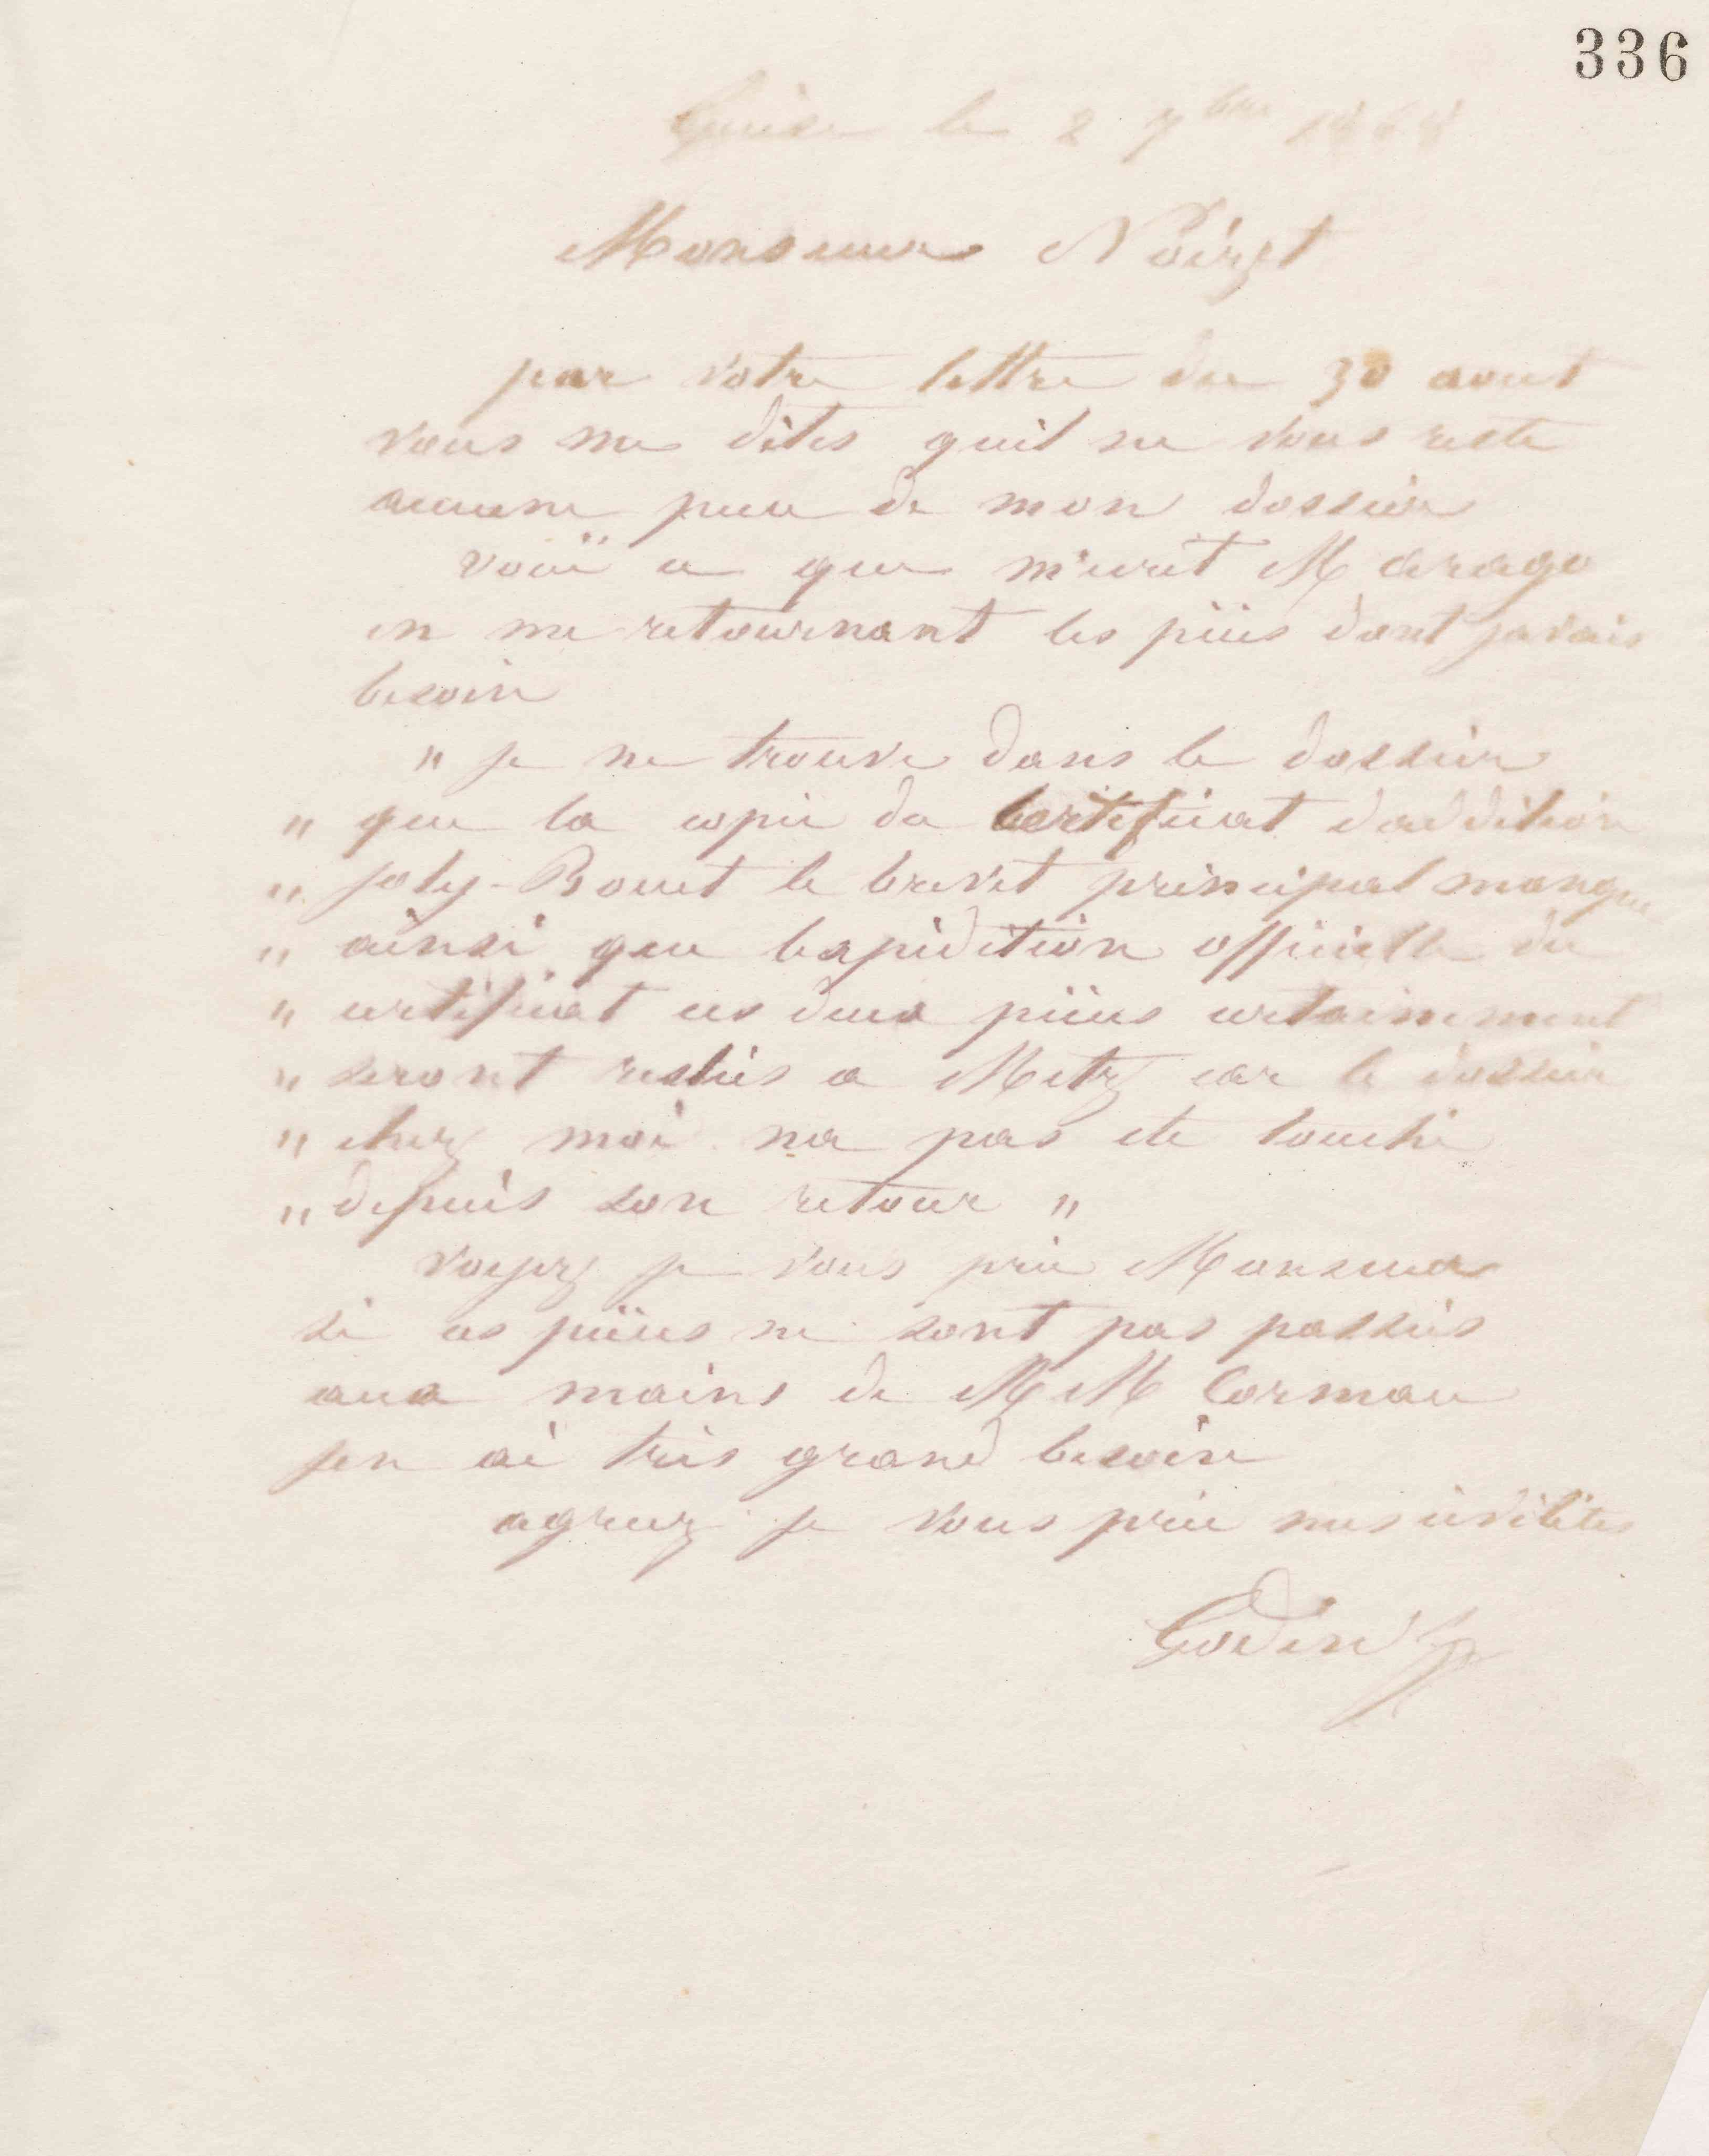 336
Guise le 2 7bre 1868
Monsieur Noirot
par votre lettre du 30 aout
vous me dites quil ne vous reste
aucune piece de mon dossier
voici ce que m'ecrit M arago
en me retournant les pieces dont javais
besoin
" je ne trouve dans le dossier
" que la copie du Certificat daddition
" joly-Bouet le brevet principal manque
" ainsi que lexpedition officielle du
" certificat ces deux pieces certainement
" seront restees a Metz car le dossier
" chez moi na pas ete touché
" depuis son retour "
voyez je vous prie Monsieur
si ces pieces ne sont pas passees
aux mains de M M
jen ai tres grand besoin
agreez je vous prie mes civilites
Godin